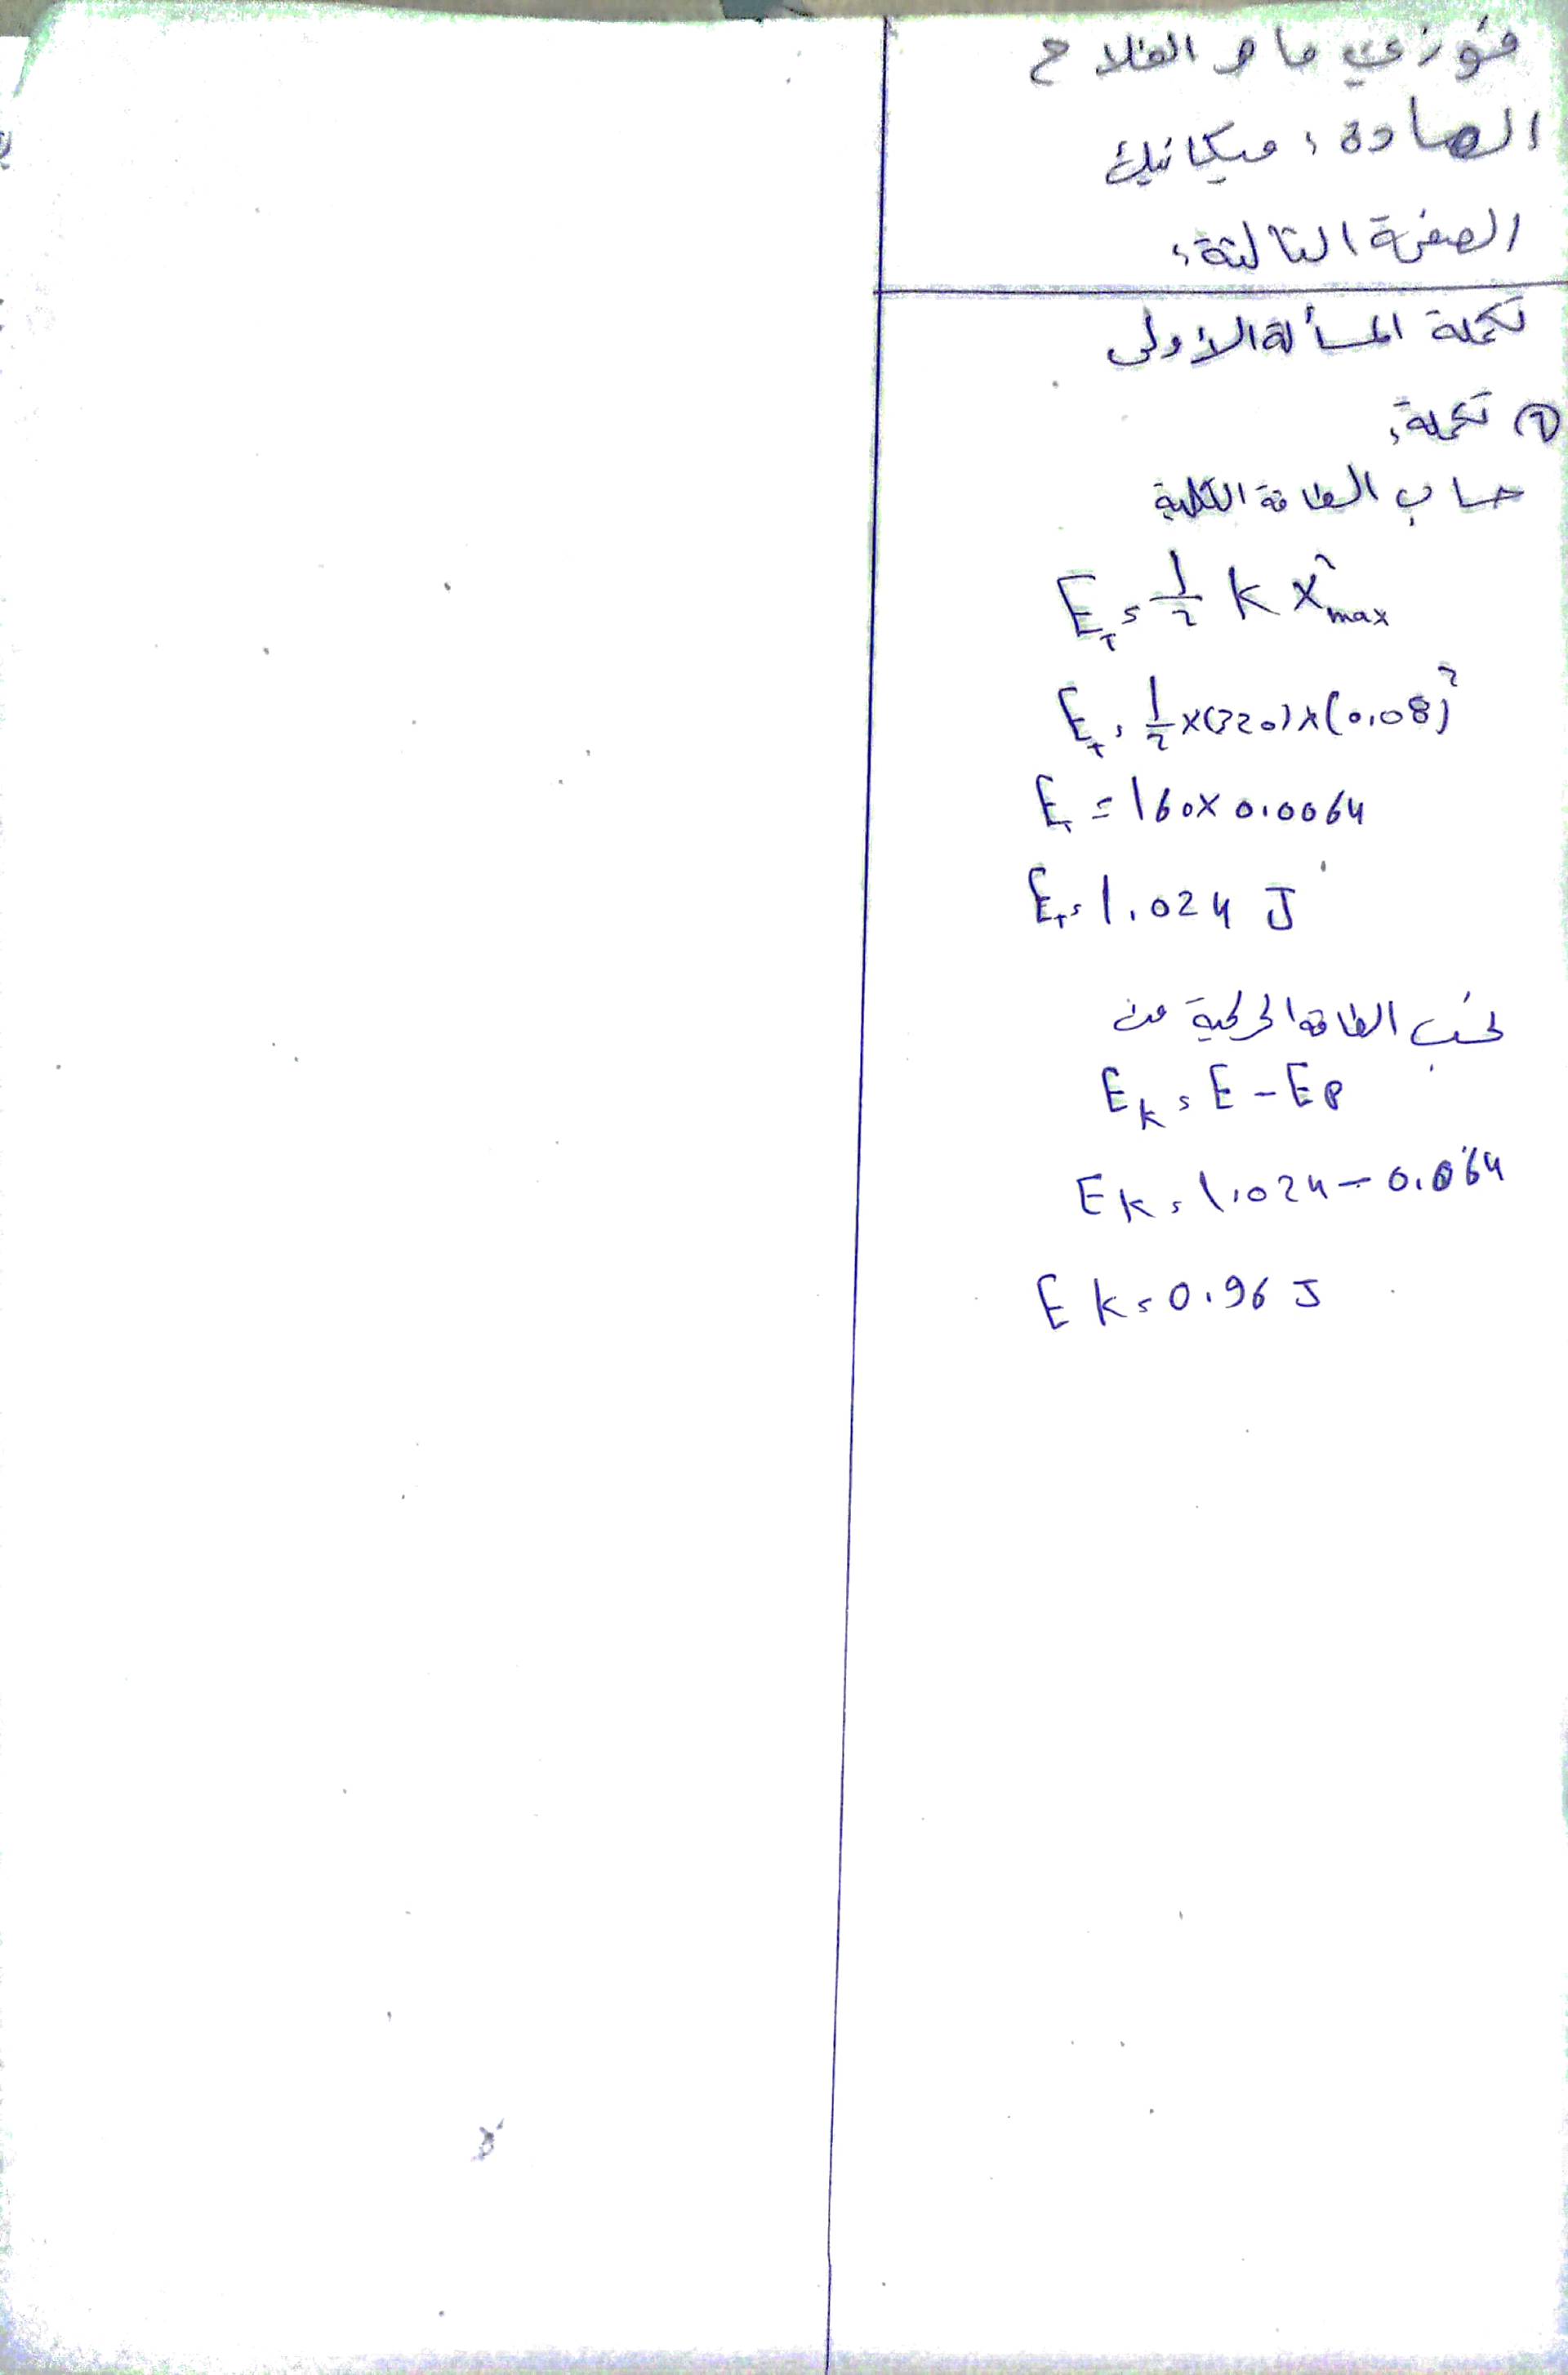 فوزي ماهر الفلاح
المادة: ميكانيك
الصفحة الثالثة:
تكملة المسألة الأولى
تكملة:
حساب الطاقة الكلية
E_T = 1/2 k X²max
E_T = 1/2 × (320) × (0.08)²
E_T = 160 × 0.0064
E_T = 1.024 J
نحسب الطاقة الحركية من
E_k = E - E_P
E_k = 1.024 - 0.064
E_k = 0.96 J